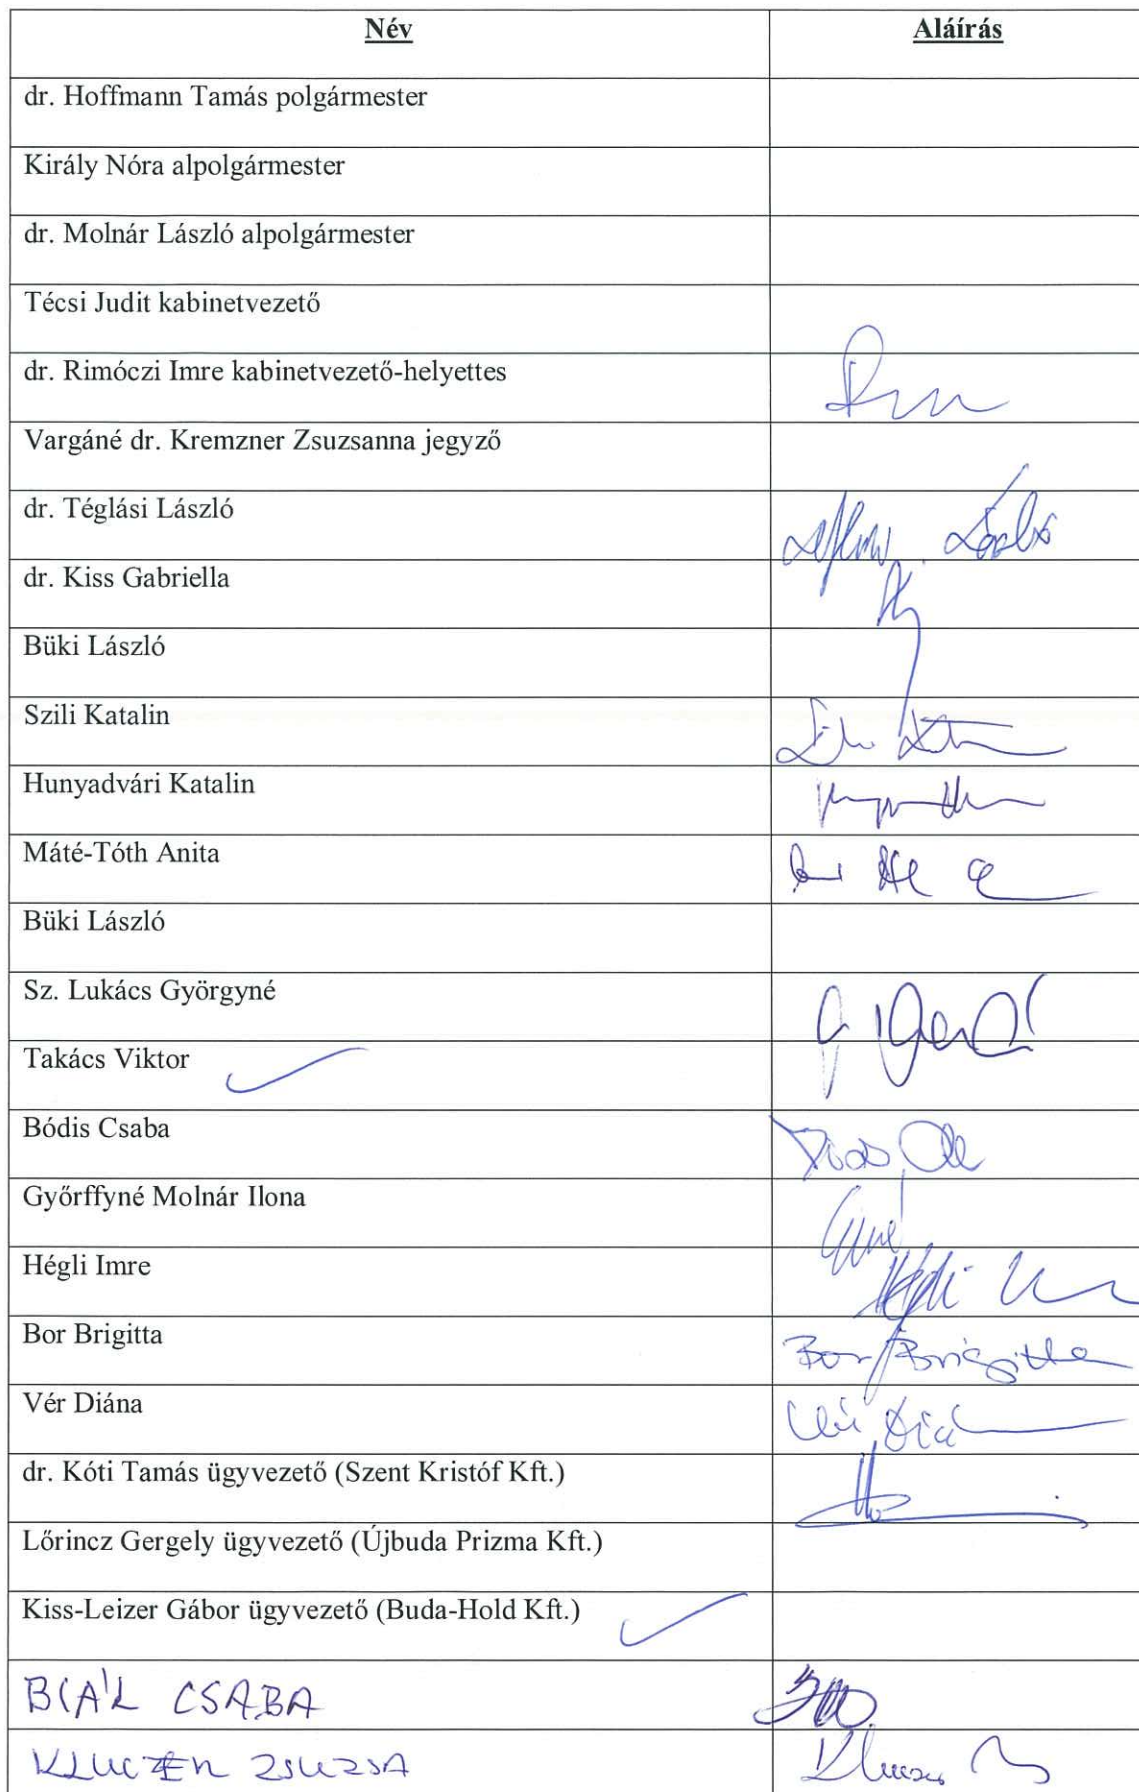 Név Aláírás
dr. Hoffmann Tamás polgármester
Király Nóra alpolgármester
dr. Molnár László alpolgármester
Técsi Judit kabinetvezető
dr. Rimóczi Imre kabinetvezető-helyettes
Vargáné dr. Kremzner Zsuzsanna jegyző
dr. Téglási László
dr. Kiss Gabriella
Büki László
Szili Katalin
Hunyadvári Katalin
Máté-Tóth Anita
Büki László
Sz. Lukács Györgyné
Takács Viktor
Bódis Csaba
Győrffyné Molnár Ilona
Hégli Imre
Bor Brigitta Bor Brigitta
Vér Diána
dr. Kóti Tamás ügyvezető (Szent Kristóf Kft.)
Lőrincz Gergely ügyvezető (Újbuda Prizma Kft.)
Kiss-Leizer Gábor ügyvezető (Buda-Hold Kft.)
CSABA
ZSUZSA